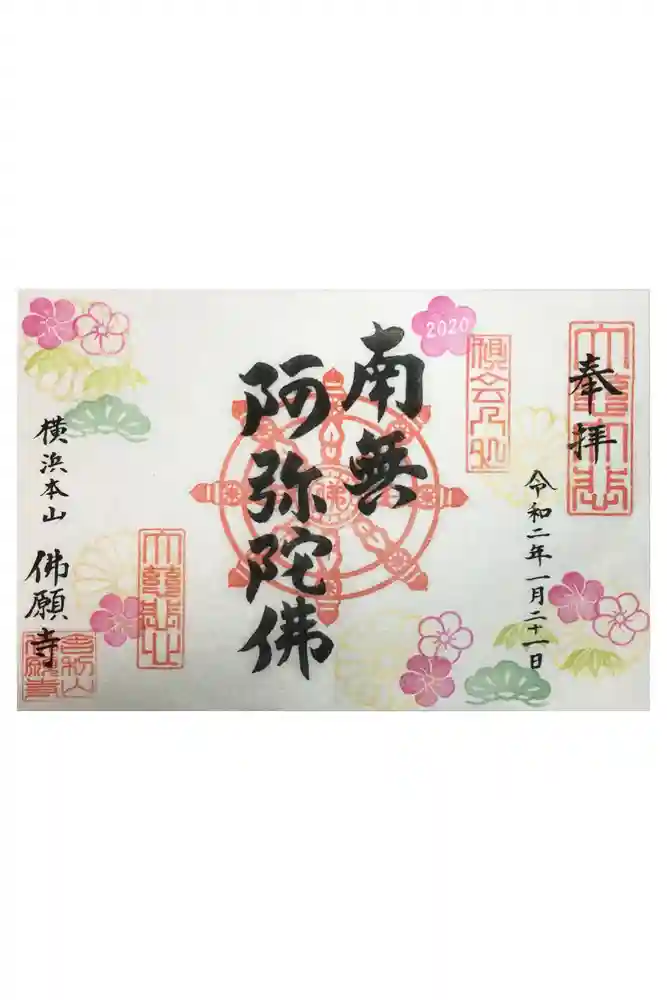 奉拝
令和二年一月二十一日
2020
南無
阿弥陀佛
佛
大慈大悲
横浜本山 佛願寺